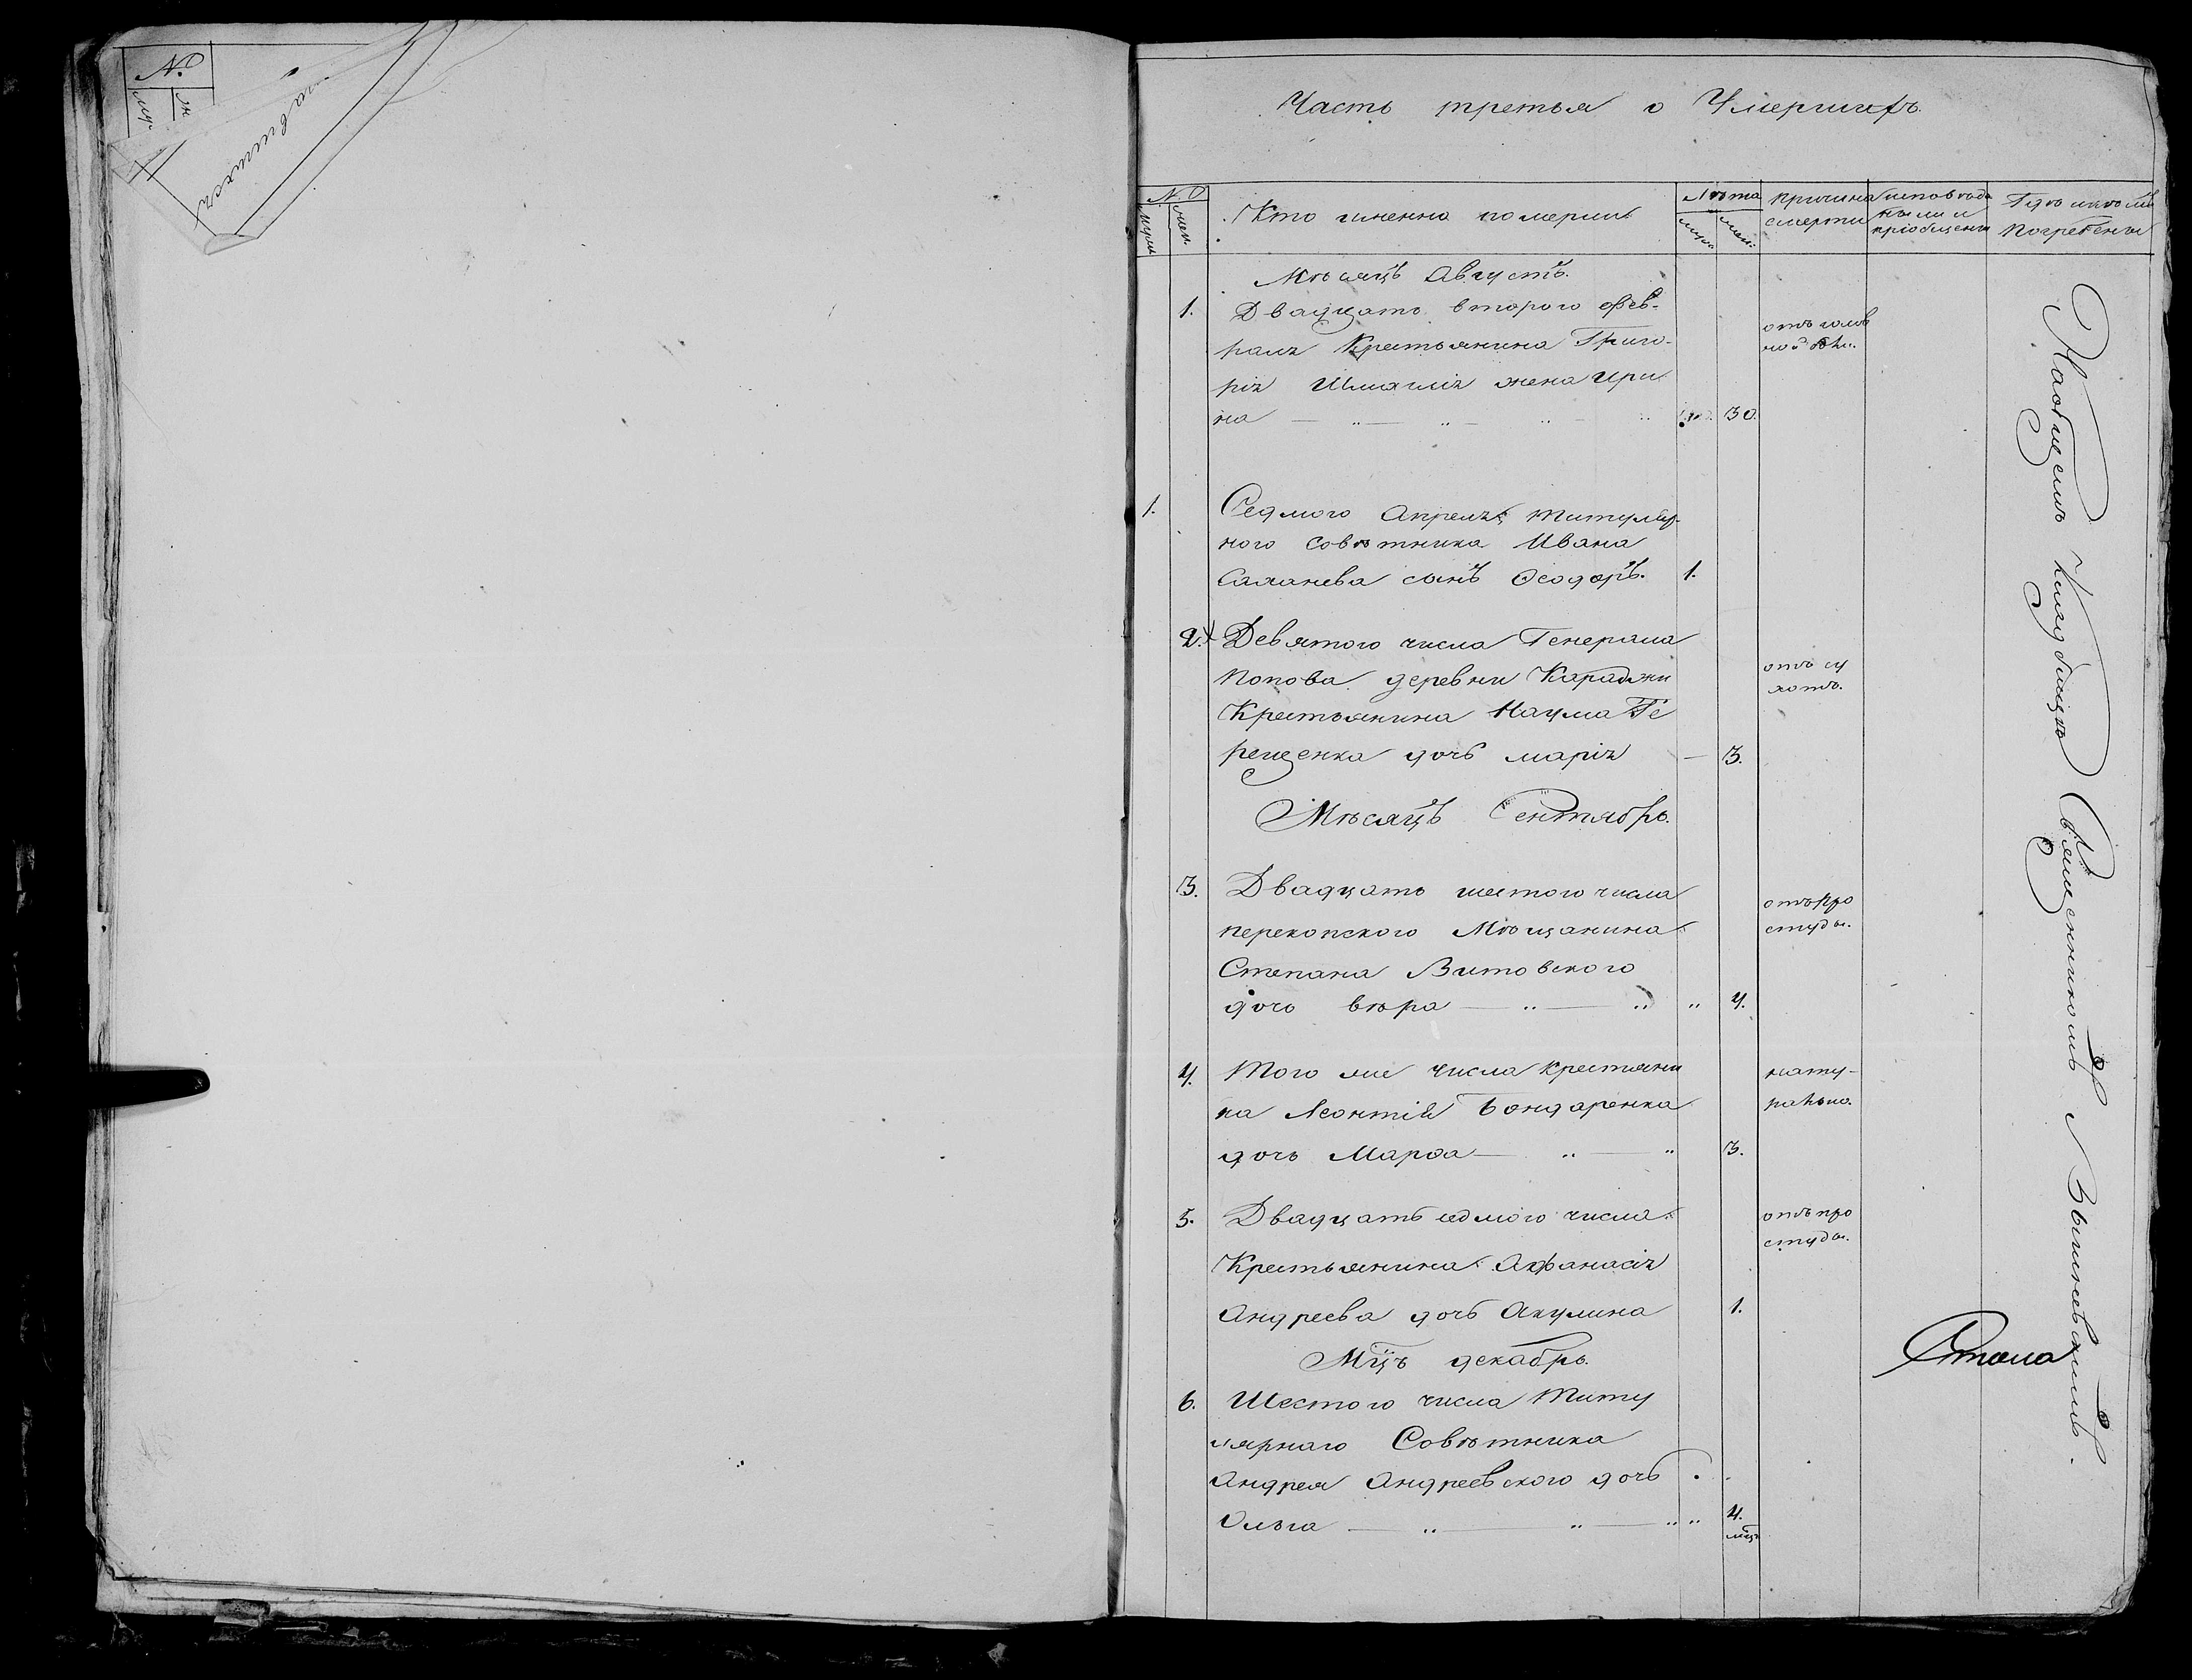 N.
муж.
ж.
Часть третья о Умершихъ.
N.
мужи
жен.
Кто имянна померли
Лѣта
муж.
жен.
причина смерти
исповѣда
ны ли и
пріобщены
Гдѣ и кѣмъ
погребены
Мѣсяцъ Августъ.
1. Двадцать второго фев-
раля Крестьянина Григо-
рія жена Ири
на 30.
отъ голов
ной боли.
1. Седмого Апреля титуляр-
ного Совѣтника Ивана
сынъ Ѳеодоръ. 1.
2. Девятого числа Генерала
Попова деревни Караджи
Крестьянина Наума Те
рещенка дочь марія — 3.
отъ су
хотъ.
Мѣсяцъ Сентябрь.
3. Двадцать шестого числа
перекопского Мѣщанина
Степана Витовского
дочь вѣра — „ — „ „ 4.
отъ про
студы.
4. Того же числа крестяни
на Леонтія Бондаренка
дочь Марѳа — „ — „ 3.
нату-
рально.
5. Двадцать седмого числа
Крестьянина Афанасія
Андреева дочь Акулина 1.
отъ про
студы.
Мцъ декабрь.
6. Шестого числа Титу
лярнаго Совѣтника
Андрея Андреевского дочь
Ольга — „ — „ — „ „ 4.
мцъ
На общемъ кладбищѣ Священникомъ Вышневскимъ.